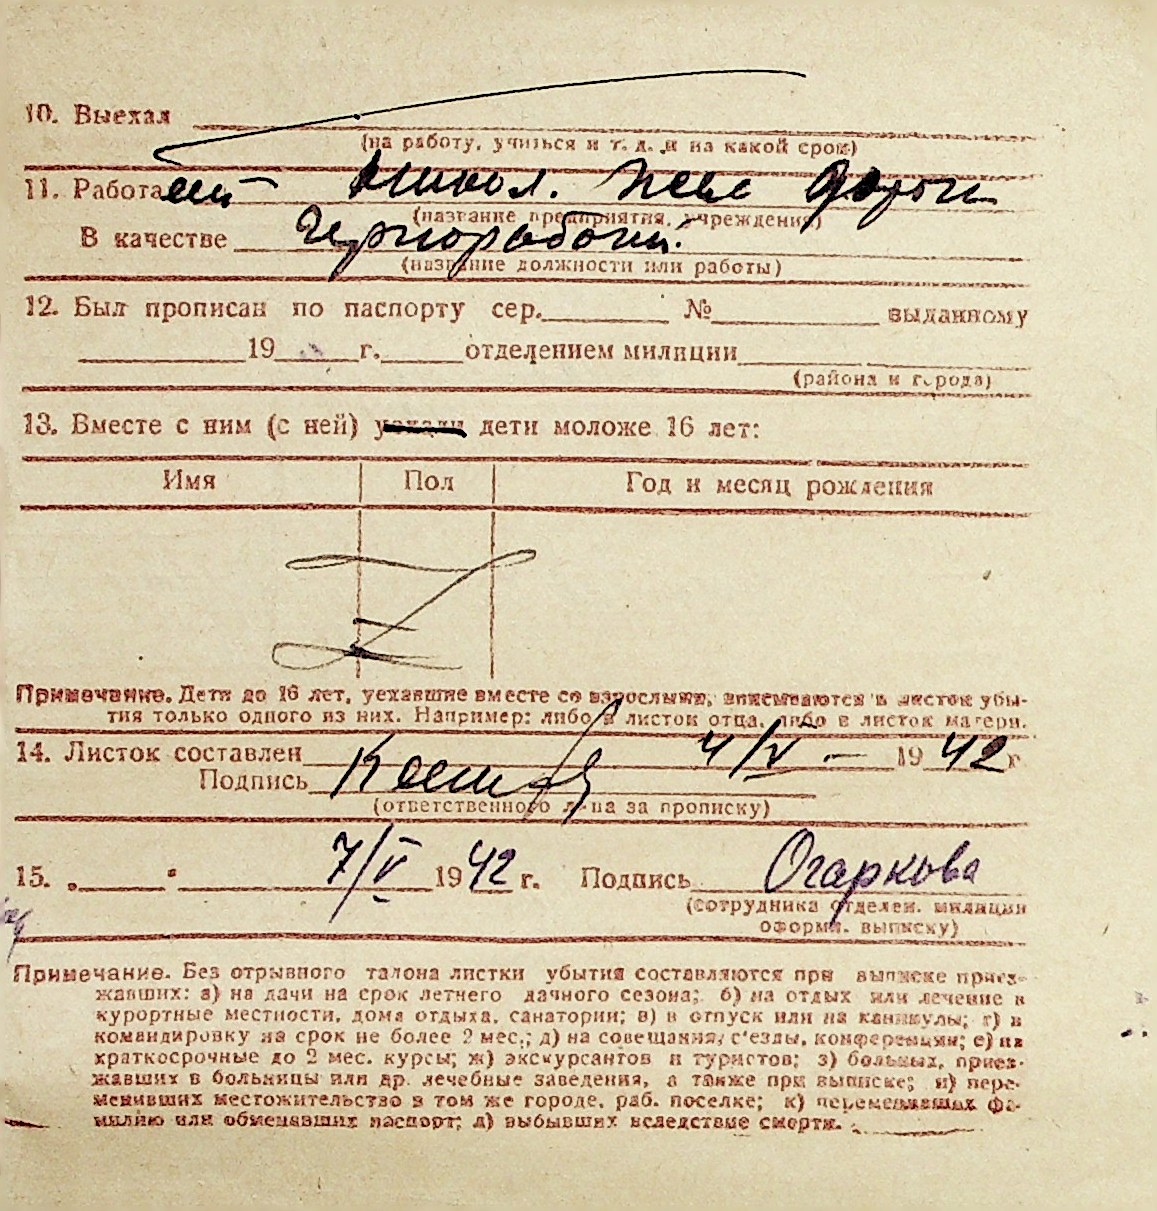 10. Выехал
(на работу, учиться и т. д. и на какой срок)
11. Работает Никол. жел дороги
(название предприятия, учреждения)
В качестве Чернорабочий.
(название должности или работы)
12. Был прописан по паспорту сер. № выданному
19 г. отделением милиции
(района и города)
13. Вместе с ним (с ней) уехали дети моложе 16 лет:
Имя Пол Год и месяц рождения
Примечание. Дети до 16 лет, уехавшие вместе со взрослыми, вписываются в листок убы-
тия только одного из них. Например: либо в листок отца, либо в листок матери.
14. Листок составлен 4/V — 1942 г
Подпись
(ответственного лица за прописку)
15. „ " 7/V 1942 г. Подпись Огаркова
(сотрудника отделен. милиции
оформл. выписку)
Примечание. Без отрывного талона листки убытия составляются при выписке приез-
жавших: а) на дачи на срок летнего дачного сезона; б) на отдых или лечение в
курортные местности, дома отдыха, санатории; в) в отпуск или на каникулы; г) в
командировку на срок не более 2 мес.; д) на совещания, с'езды, конференции; е) на
краткосрочные до 2 мес. курсы; ж) экскурсантов и туристов; з) больных, приез-
жавших в больницы или др. лечебные заведения, а также при выписке; и) пере-
менивших местожительство в том же городе, раб. поселке; к) переменивших фа-
милию или обменавших паспорт; л) выбывших вследствие смерти.